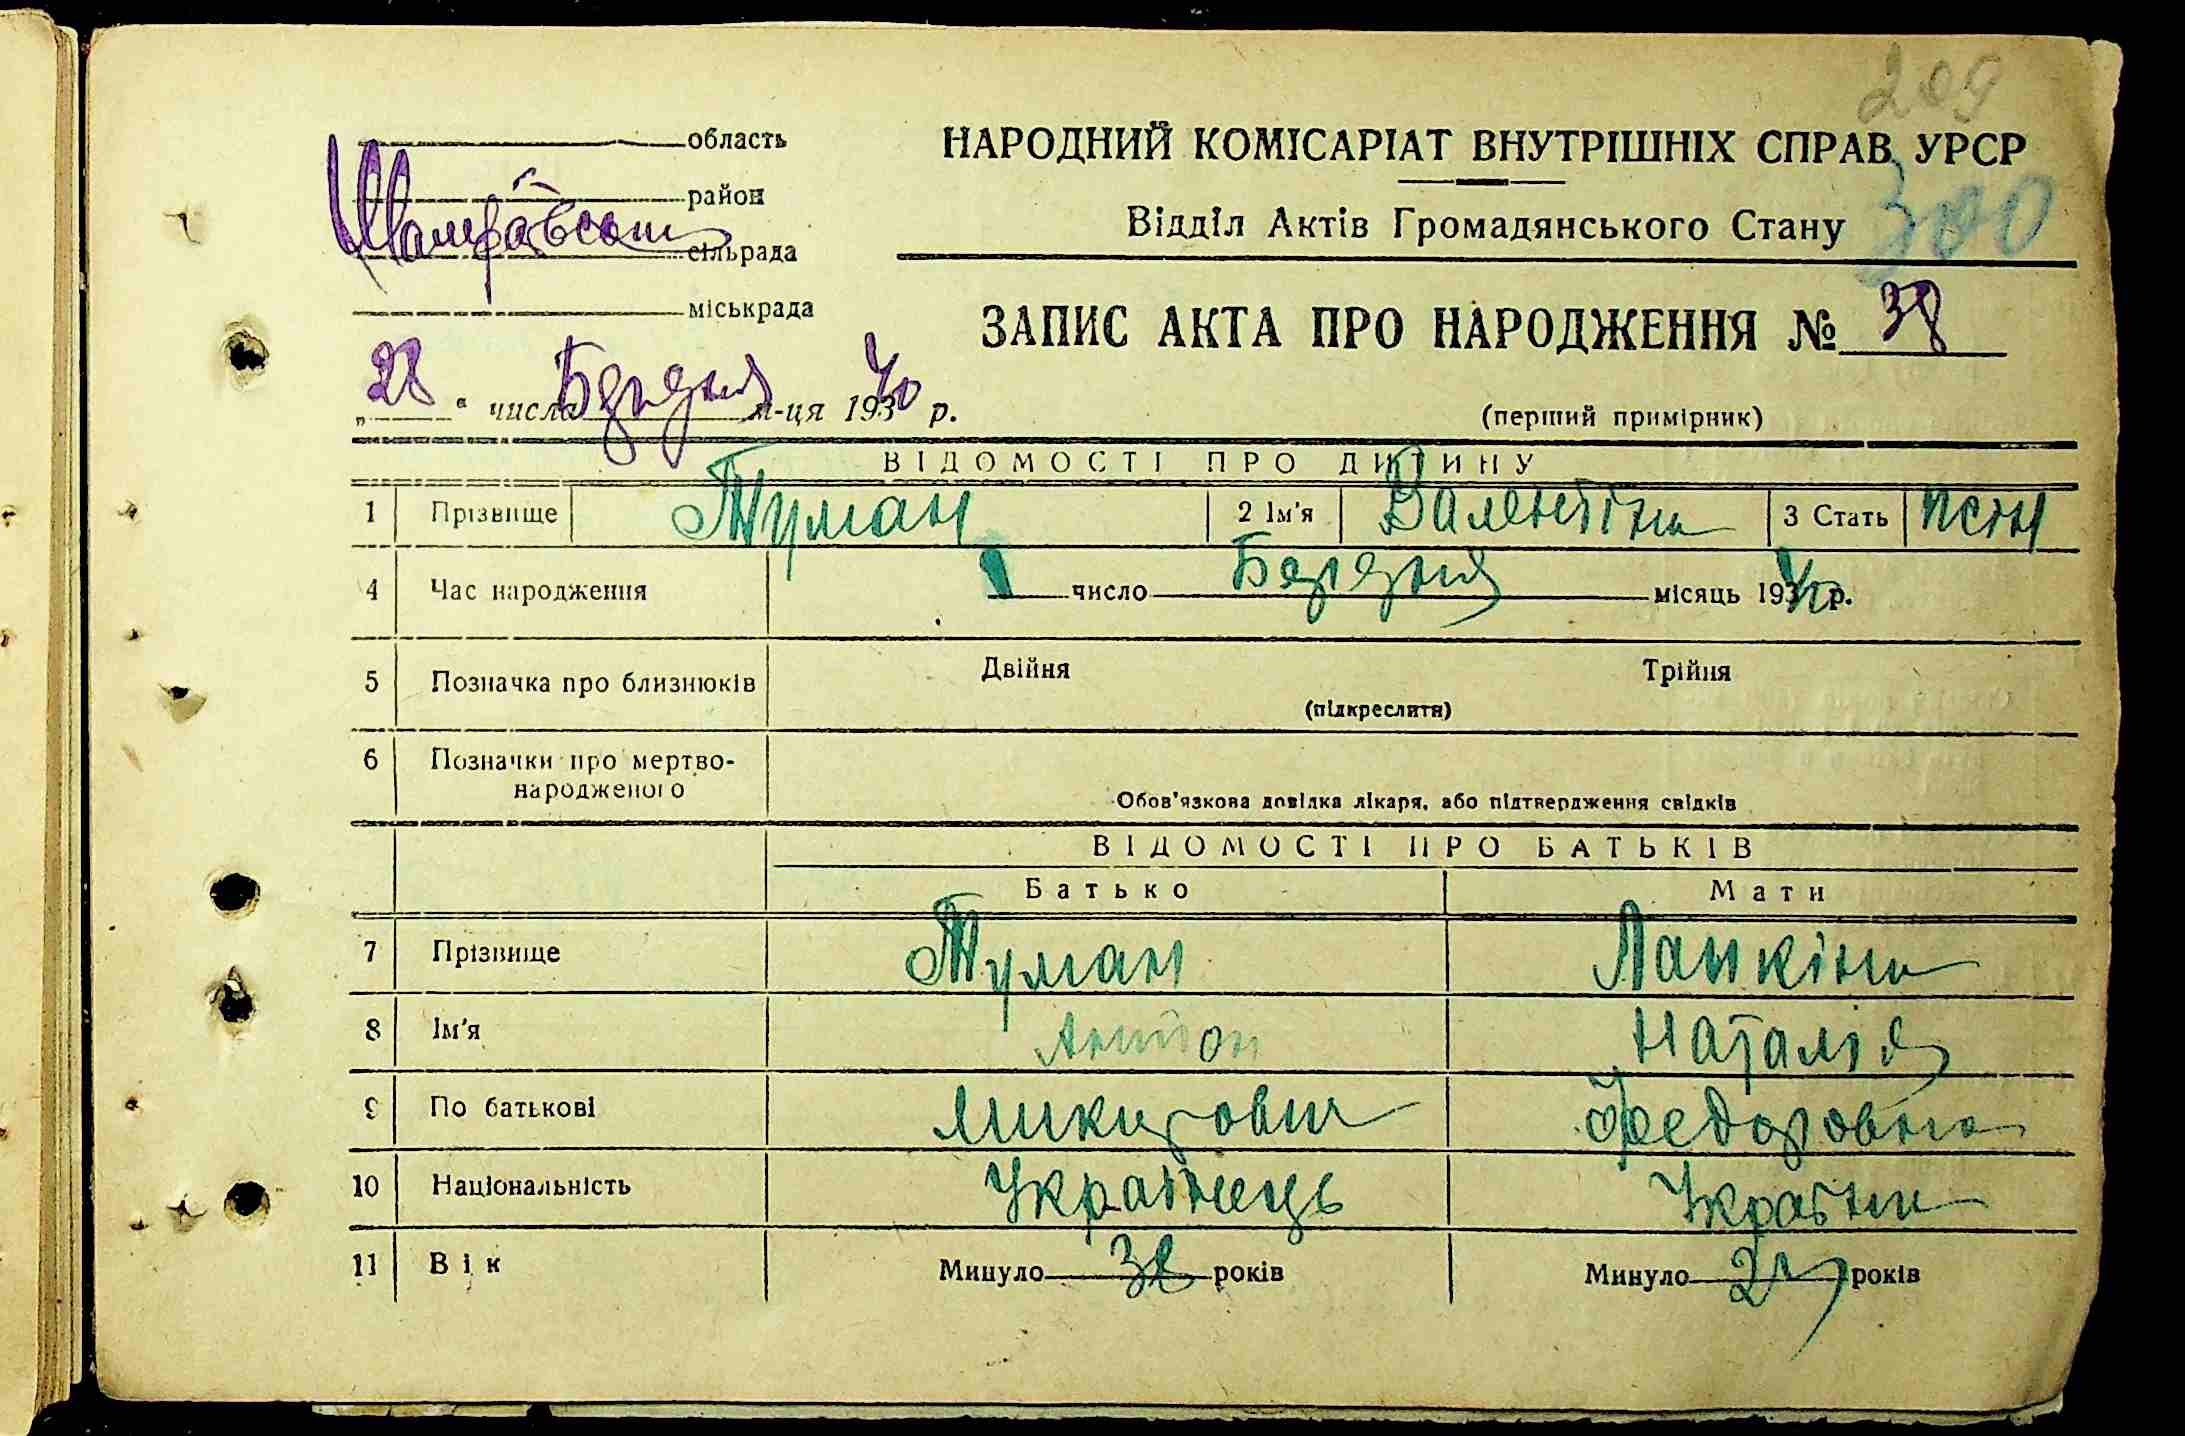 209
область
район
Шамраївська сільрада
міськрада
НАРОДНИЙ КОМІСАРІАТ ВНУТРІШНІХ СПРАВ УРСР
Відділ Актів Громадянського Стану
300
ЗАПИС АКТА ПРО НАРОДЖЕННЯ № 38
„28“ числа Березня м-ця 1940 р.
(перший примірник)
ВІДОМОСТІ ПРО ДИТИНУ
1 Прізвище Туман 2 Ім'я Валентіна 3 Стать
4 Час народження число Березня місяць 1940 р.
5 Позначка про близнюків Двійня Трійня
(підкреслити)
6 Позначки про мертво-
народженого
Обов'язкова довідка лікаря, або підтвердження свідків
ВІДОМОСТІ ПРО БАТЬКІВ
Батько Мати
7 Прізвище Туман
8 Ім'я Антон Наталія
9 По батькові Микитович Федоровна
10 Національність Українець Українка
11 Вік Минуло років Минуло років